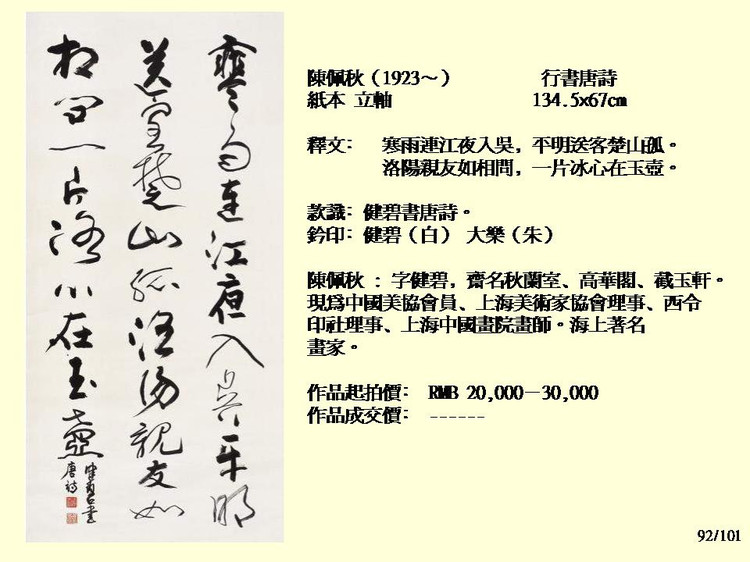 寒雨連江夜入吳平明
送客楚山孤洛陽親友如
相問一片冰心在玉壺
健碧書
唐詩
陳佩秋（1923～） 行書唐詩
紙本 立軸 134.5x67cm
釋文： 寒雨連江夜入吳，平明送客楚山孤。
洛陽親友如相問，一片冰心在玉壺。
款識：健碧書唐詩。
鈐印：健碧（白） 大樂（朱）
陳佩秋 ：字健碧，齋名秋蘭室、高華閣、截玉軒。
現為中國美協會員、上海美術家協會理事、西令
印社理事、上海中國畫院畫師。海上著名
畫家。
作品起拍價： RMB 20,000－30,000
作品成交價： ------
92/101